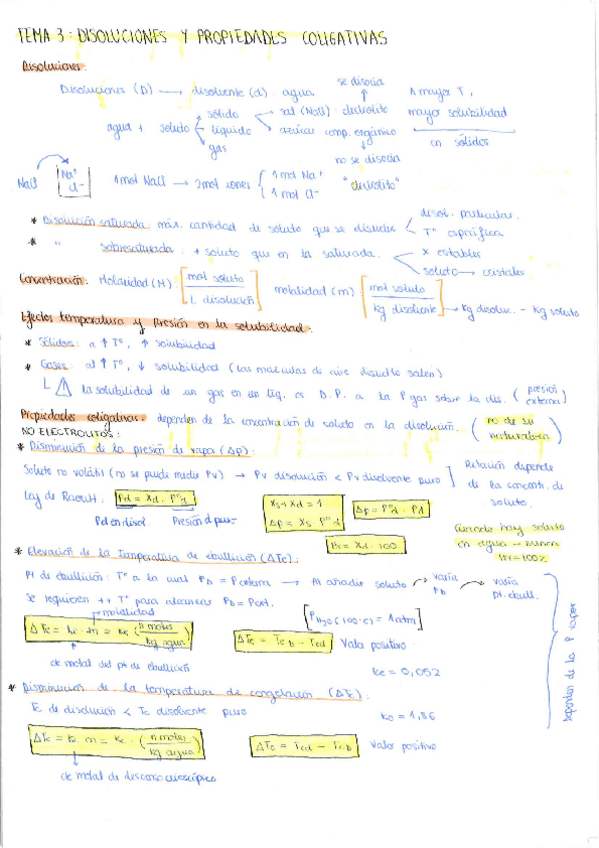 TEMA 3: DISOLUCIONES Y PROPIEDADES COLIGATIVAS
Disoluciones:
Disoluciones (D) → disolvente (d): agua.
agua + soluto
sólido
líquido
gas
sal (NaCl) electrolito
azúcar comp. orgánico
se disocia
no se disocia
"electrolito"
A mayor T,
mayor solubilidad
en sólidos
NaCl
Na⁺
Cl⁻
1 mol NaCl → 2 mol iones
1 mol Na⁺
1 mol Cl⁻
* Disolución saturada: máx. cantidad de soluto que se disuelve
disol. particular.
Tº específica
* " sobresaturada: + soluto que en la saturada.
x estables
soluto → cristales
Concentración: Molaridad (M)
mol soluto
L disolución
molalidad (m)
mol soluto
kg disolvente → kg disoluc. - kg soluto
Efectos temperatura y presión en la solubilidad:
* Sólidos: a ↑ Tº, ↑ solubilidad
* Gases: al ↑ Tº, ↓ solubilidad (las moléculas de aire disuelto salen)
la solubilidad de un gas en un líq. es D.P. a la P gas sobre la dis. (presión externa)
Propiedades coligativas: dependen de la concentración de soluto en la disolución. (no de su naturaleza)
NO ELECTROLITOS:
* Disminución de la presión de vapor (Δp):
Soluto no volátil (no se puede medir Pv) → Pv disolución < Pv disolvente puro
Relación depende
de la concentr. de
soluto.
Ley de Raoult: Pd = Xd · Pºd
Pd en disol. Presión d puro
Xs + Xd = 1
Δp = Xs · Pºd
Δp = Pºd - Pd
Hr = Xd · 100
Cuando hay soluto
en agua → nunca
Hr = 100%
* Elevación de la Temperatura de ebullición (ΔTe):
Pt de ebullición: Tº a la cual PD = P externa → Al añadir soluto → varía PD → varía pt. ebull.
Se requieren ++ Tº para alcanzar PD = Pext.
molalidad
[PH₂O (100ºC) = 1 atm]
ΔTe = ke · m = ke · (n moles / kg agua)
ΔTe = TeD - Ted Valor positivo
cte molal del pt de ebullición
ke = 0,052
Dependen de la P vapor
* Disminución de la temperatura de congelación (ΔTc):
Tc de disolución < Tc disolvente puro
kc = 1,86
ΔTc = kc · m = kc · (n moles / kg agua)
ΔTc = Tcd - TcD Valor positivo
cte molal de descenso crioscópico